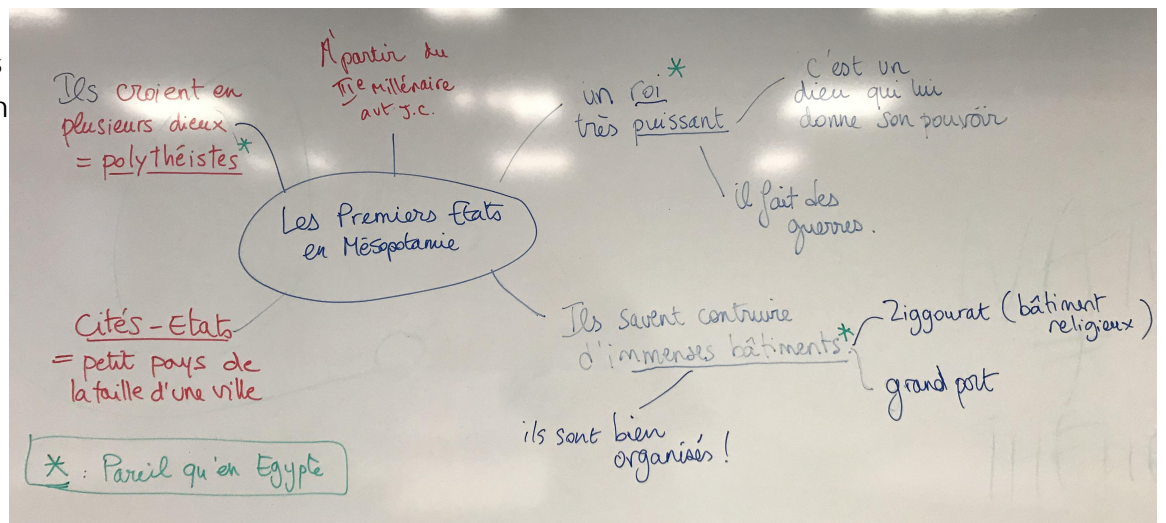 Ils croient en
plusieurs dieux
= polythéistes *
A partir du
IIIe millénaire
avt J.C.
un roi *
très puissant
c'est un
dieu qui lui
donne son pouvoir
il fait des
guerres.
Les Premiers Etats
en Mésopotamie
Cités-Etats
= petit pays de
la taille d'une ville
Ils savent contruire
d'immenses bâtiments *.
Ziggourat (bâtiment
religieux)
grand port
ils sont bien
organisés !
* : Pareil qu'en Egypte